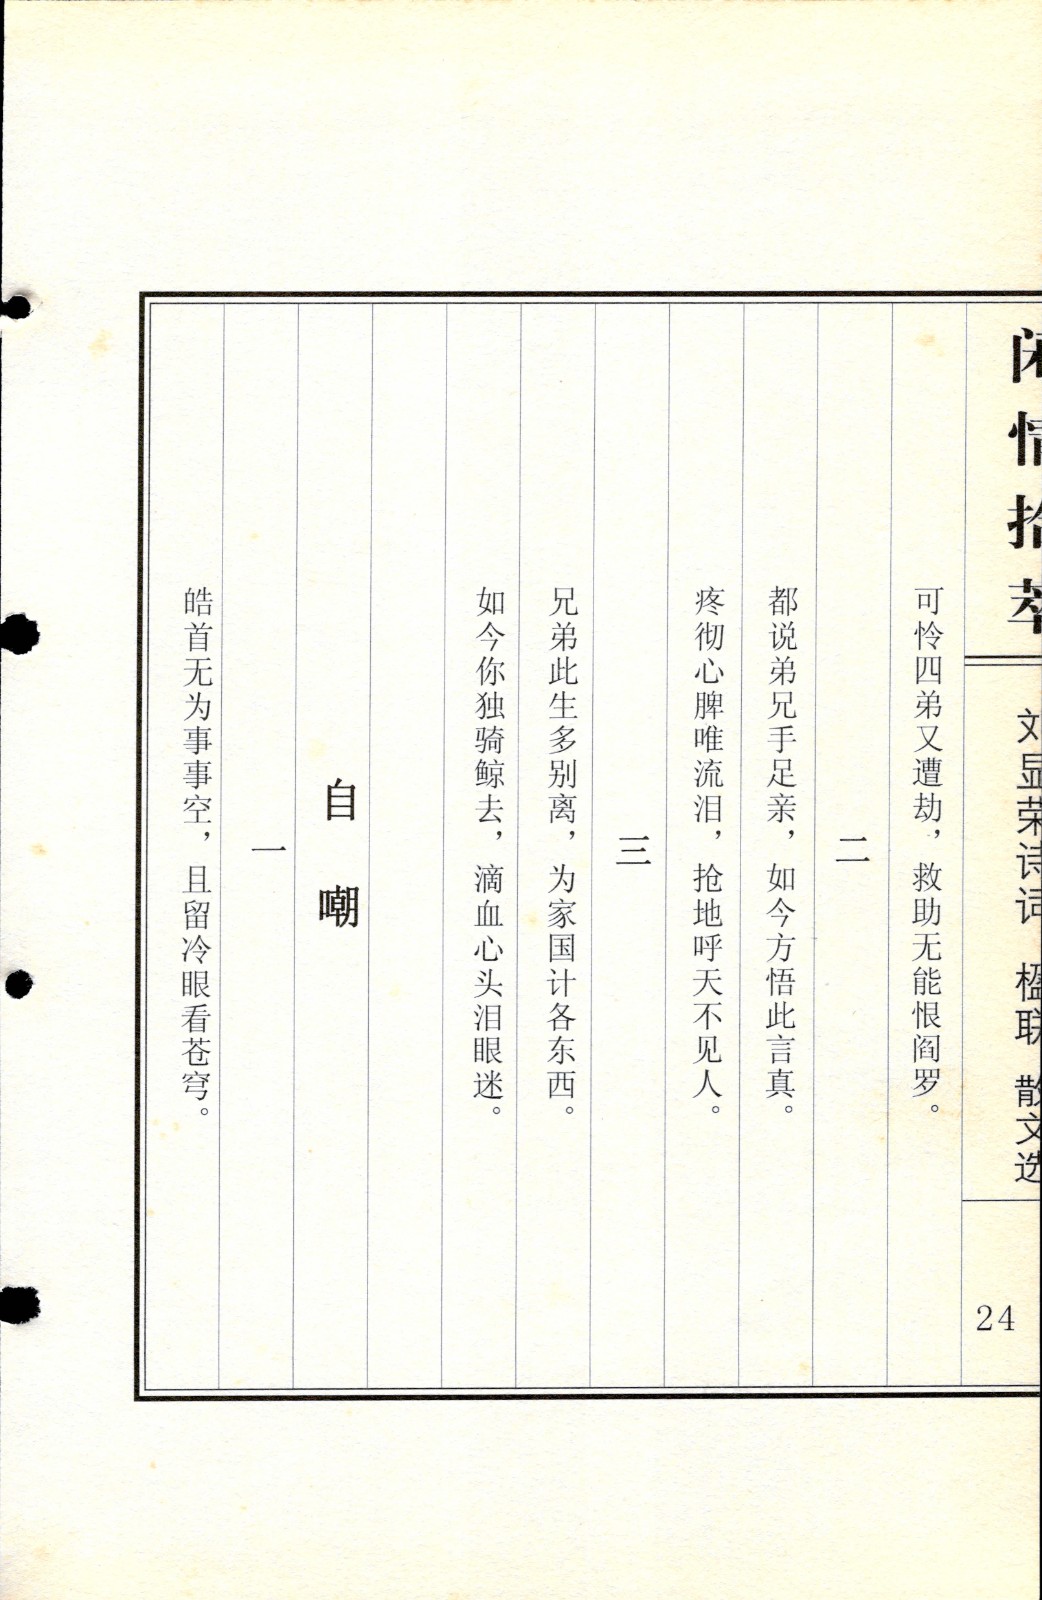 闲情拾萃
刘显荣诗词 楹联 散文选
24
可怜四弟又遭劫，救助无能恨阎罗。
二
都说弟兄手足亲，如今方悟此言真。
疼彻心脾唯流泪，抢地呼天不见人。
三
兄弟此生多别离，为家国计各东西。
如今你独骑鲸去，滴血心头泪眼迷。
自嘲
一
皓首无为事事空，且留冷眼看苍穹。